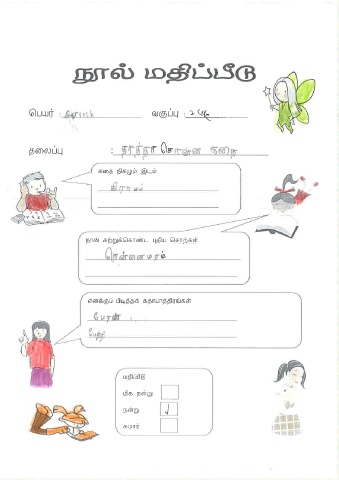 நூல் மதிப்பீடு
பெயர் : வகுப்பு : 2
தலைப்பு : தாத்தா சொன்ன கதை
கதை நிகழும் இடம்
கிராமம்
நான் கற்றுக்கொண்ட புதிய சொற்கள்
தென்னைமரம்
எனக்குப் பிடித்தக் கதாபாத்திரங்கள்
பேரன்
பேத்தி
மதிப்பீடு
மிக நன்று
நன்று /
சுமார்